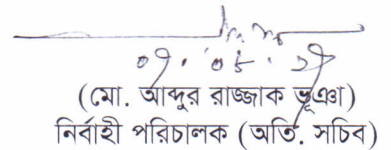 (মো. আব্দুর রাজ্জাক ভূঞা)
নির্বাহী পরিচালক (অতি. সচিব)